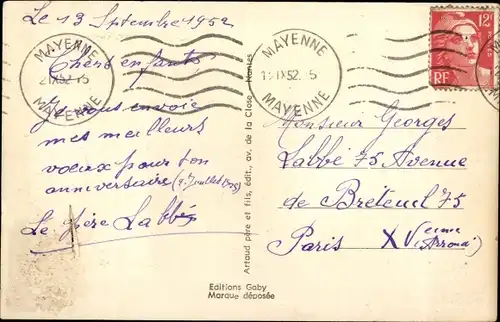 Le 13 Septembre 1952
MAYENNE
MAYENNE
Chers enfants,
Je vous envoie
mes meilleurs
voeux pour ton
anniversaire
Le Père Labbé
Artaud père et fils, édit., av. de la Close - Nantes
Editions Gaby
Marque déposée
MAYENNE
IX52
MAYENNE
12F
RF
Monsieur Georges
Labbé 75 Avenue
de Breteuil 75
Paris XVeme
Arrond